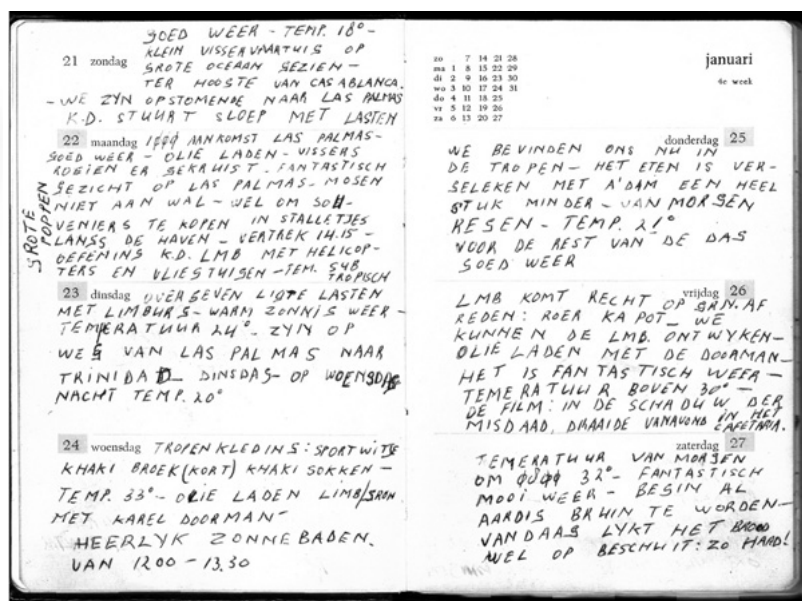 GOED WEER - TEMP. 18° -
KLEIN VISSERVAARTUIG OP
21 zondag GROTE OCEAAN GEZIEN -
TER HOOGTE VAN CASABLANCA.
- WE ZYN OPSTOMENDE NAAR LAS PALMAS
K.D. STUURT SLOEP MET LASTEN
22 maandag AANKOMST LAS PALMAS -
GOED WEER - OLIE LADEN - VISSERS
ROEIEN ER GEKRUIST. FANTASTISCH
GEZICHT OP LAS PALMAS - MOGEN
NIET AAN WAL - WEL OM SOU-
VENIERS TE KOPEN IN STALLETJES
GROTE POPPEN
LANGS DE HAVEN - VERTREK 14.15 -
OEFENING K.D. LMB MET HELICOP-
TERS EN VLIEGTUIGEN - TEM. SUB
TROPISCH
23 dinsdag OVERGEVEN LIGTE LASTEN
MET LIMBURG - WARM ZONNIG WEER -
TEMPERATUUR 24° - ZYN OP
WEG VAN LAS PALMAS NAAR
TRINIDAD - DINSDAG - OP WOENSDAG
NACHT TEMP. 20°
24 woensdag TROPENKLEDING: SPORT WITJE
KHAKI BROEK (KORT) KHAKI SOKKEN -
TEMP. 33° - OLIE LADEN LIMB/GRON
MET KAREL DOORMAN -
HEERLYK ZONNEBADEN.
VAN 1200 - 13.30
zo 7 14 21 28
ma 1 8 15 22 29
di 2 9 16 23 30
wo 3 10 17 24 31
do 4 11 18 25
vr 5 12 19 26
za 6 13 20 27
januari
4e week
donderdag 25
WE BEVINDEN ONS NU IN
DE TROPEN - HET ETEN IS VER-
GELEKEN MET A'DAM EEN HEEL
STUK MINDER - VAN MORGEN
REGEN - TEMP. 21°
VOOR DE REST VAN DE DAG
GOED WEER
vrijdag 26
LMB KOMT RECHT OP GRN. AF
REDEN: ROER KAPOT - WE
KUNNEN DE LMB. ONTWYKEN -
OLIE LADEN MET DE DOORMAN -
HET IS FANTASTISCH WEER -
TEMERATUUR BOVEN 30° -
DE FILM: IN DE SCHADUW DER
MISDAAD, DRAAIDE VANAVOND IN HET
CAFETARIA.
zaterdag 27
TEMERATUUR VAN MORGEN
OM 0800 32° - FANTASTISCH
MOOI WEER - BEGIN AL
AARDIG BRUIN TE WORDEN -
VANDAAG LYKT HET BROOD
WEL OP BESCHUIT: ZO HARD!